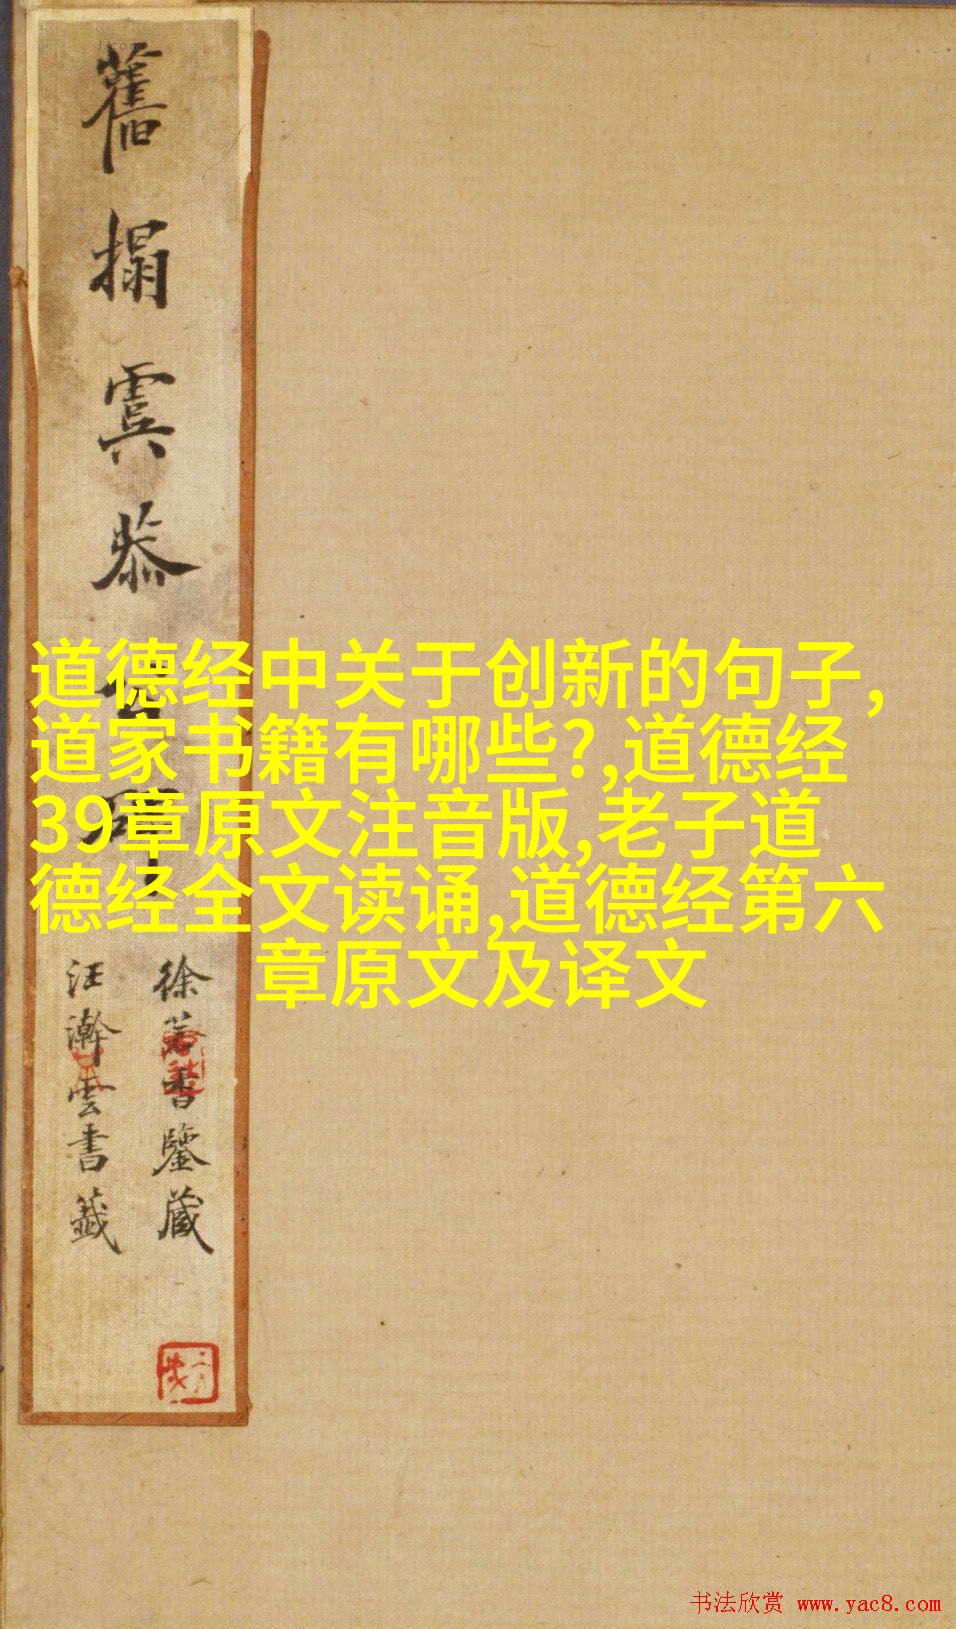 舊搨虞恭公碑
徐若書鑒藏
汪瀚雲書籤
道德经中关于创新的句子,
道家书籍有哪些?,道德经
39章原文注音版,老子道
德经全文读诵,道德经第六
章原文及译文
书法欣赏 www.yac8.com